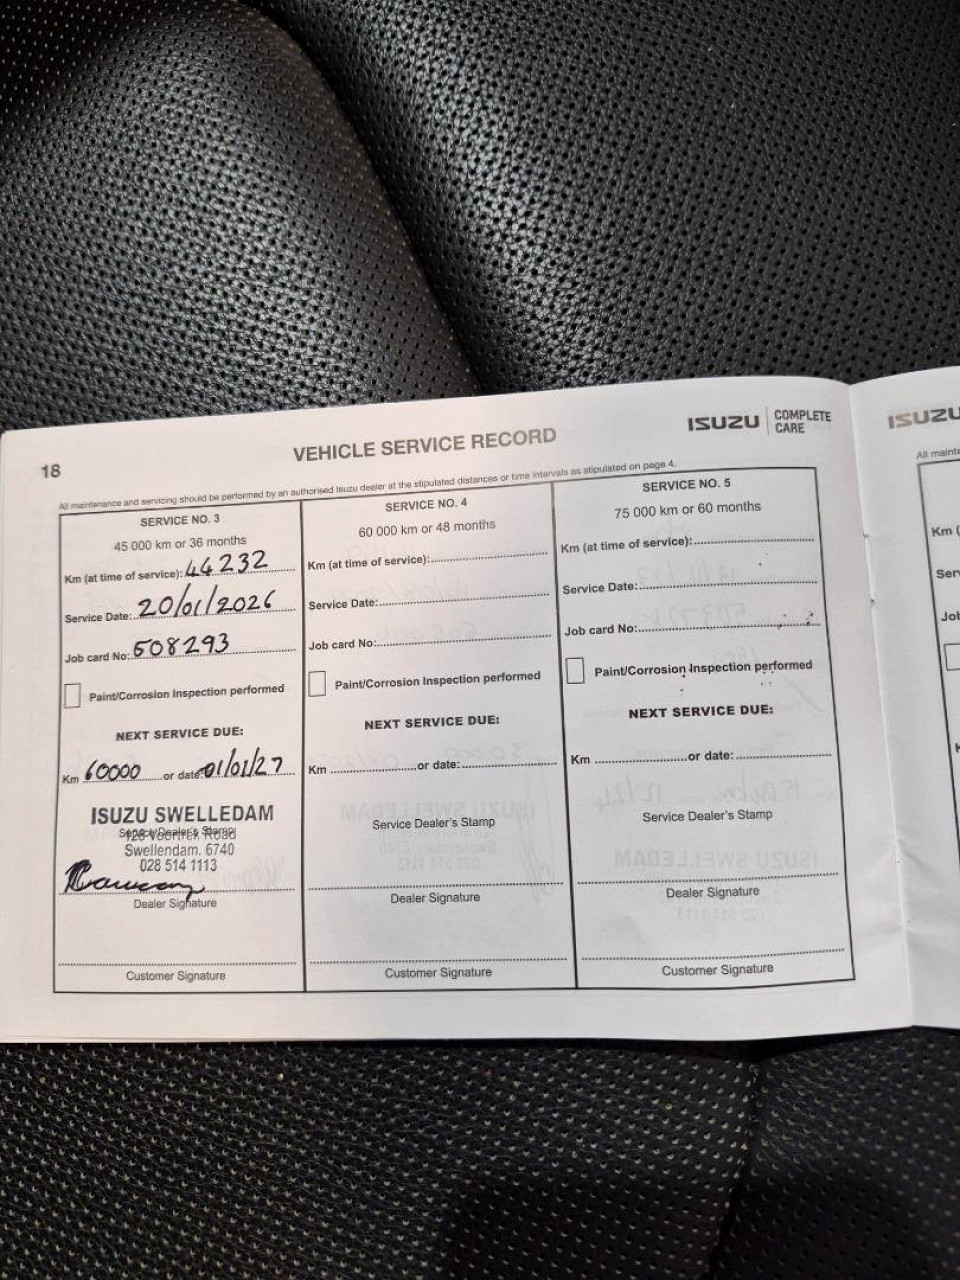 18
VEHICLE SERVICE RECORD
ISUZU COMPLETE CARE
All maintenance and servicing should be performed by an authorised Isuzu dealer at the stipulated distances or time intervals as stipulated on page 4.
SERVICE NO. 3
45 000 km or 36 months
Km (at time of service): 44232
Service Date: 20/01/2026
Job card No: 508293
Paint/Corrosion Inspection performed
NEXT SERVICE DUE:
Km 60000 or date: 01/01/27
ISUZU SWELLEDAM
Service Dealer's Stamp
126 Voortrek Road
Swellendam. 6740
028 514 1113
Dealer Signature
Customer Signature
SERVICE NO. 4
60 000 km or 48 months
Km (at time of service):
Service Date:
Job card No:
Paint/Corrosion Inspection performed
NEXT SERVICE DUE:
Km or date:
Service Dealer's Stamp
Dealer Signature
Customer Signature
SERVICE NO. 5
75 000 km or 60 months
Km (at time of service):
Service Date:
Job card No:
Paint/Corrosion Inspection performed
NEXT SERVICE DUE:
Km or date:
Service Dealer's Stamp
Dealer Signature
Customer Signature
ISUZU
All
Km